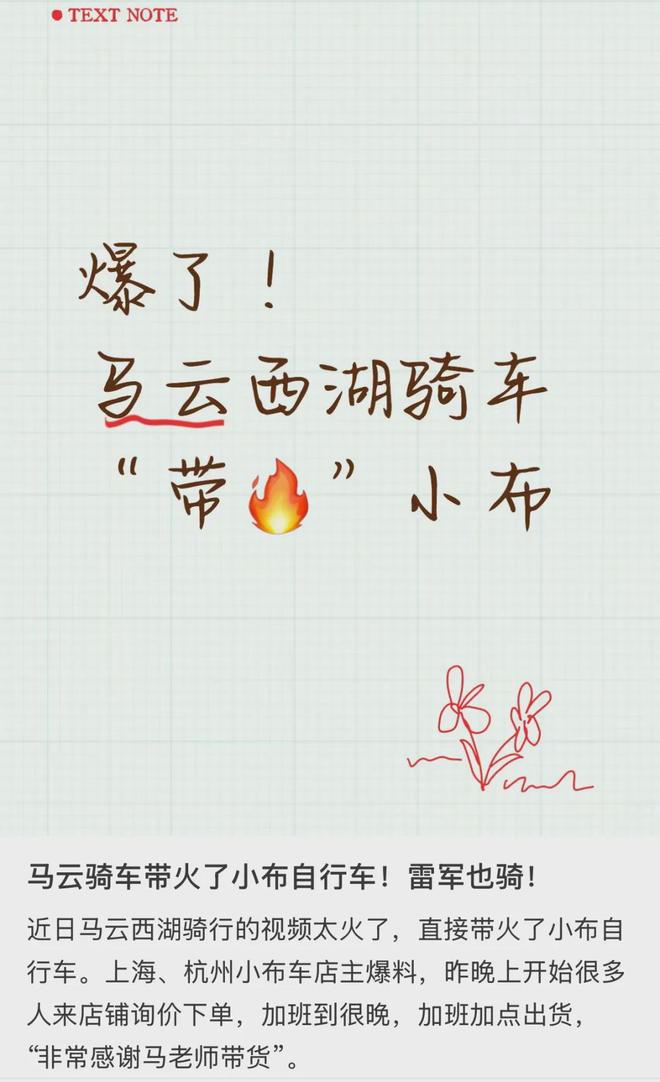 TEXT NOTE
爆了！
马云西湖骑车
“带🔥”小布
马云骑车带火了小布自行车！雷军也骑！
近日马云西湖骑行的视频太火了，直接带火了小布自
行车。上海、杭州小布车店主爆料，昨晚上开始很多
人来店铺询价下单，加班到很晚，加班加点出货，
“非常感谢马老师带货”。